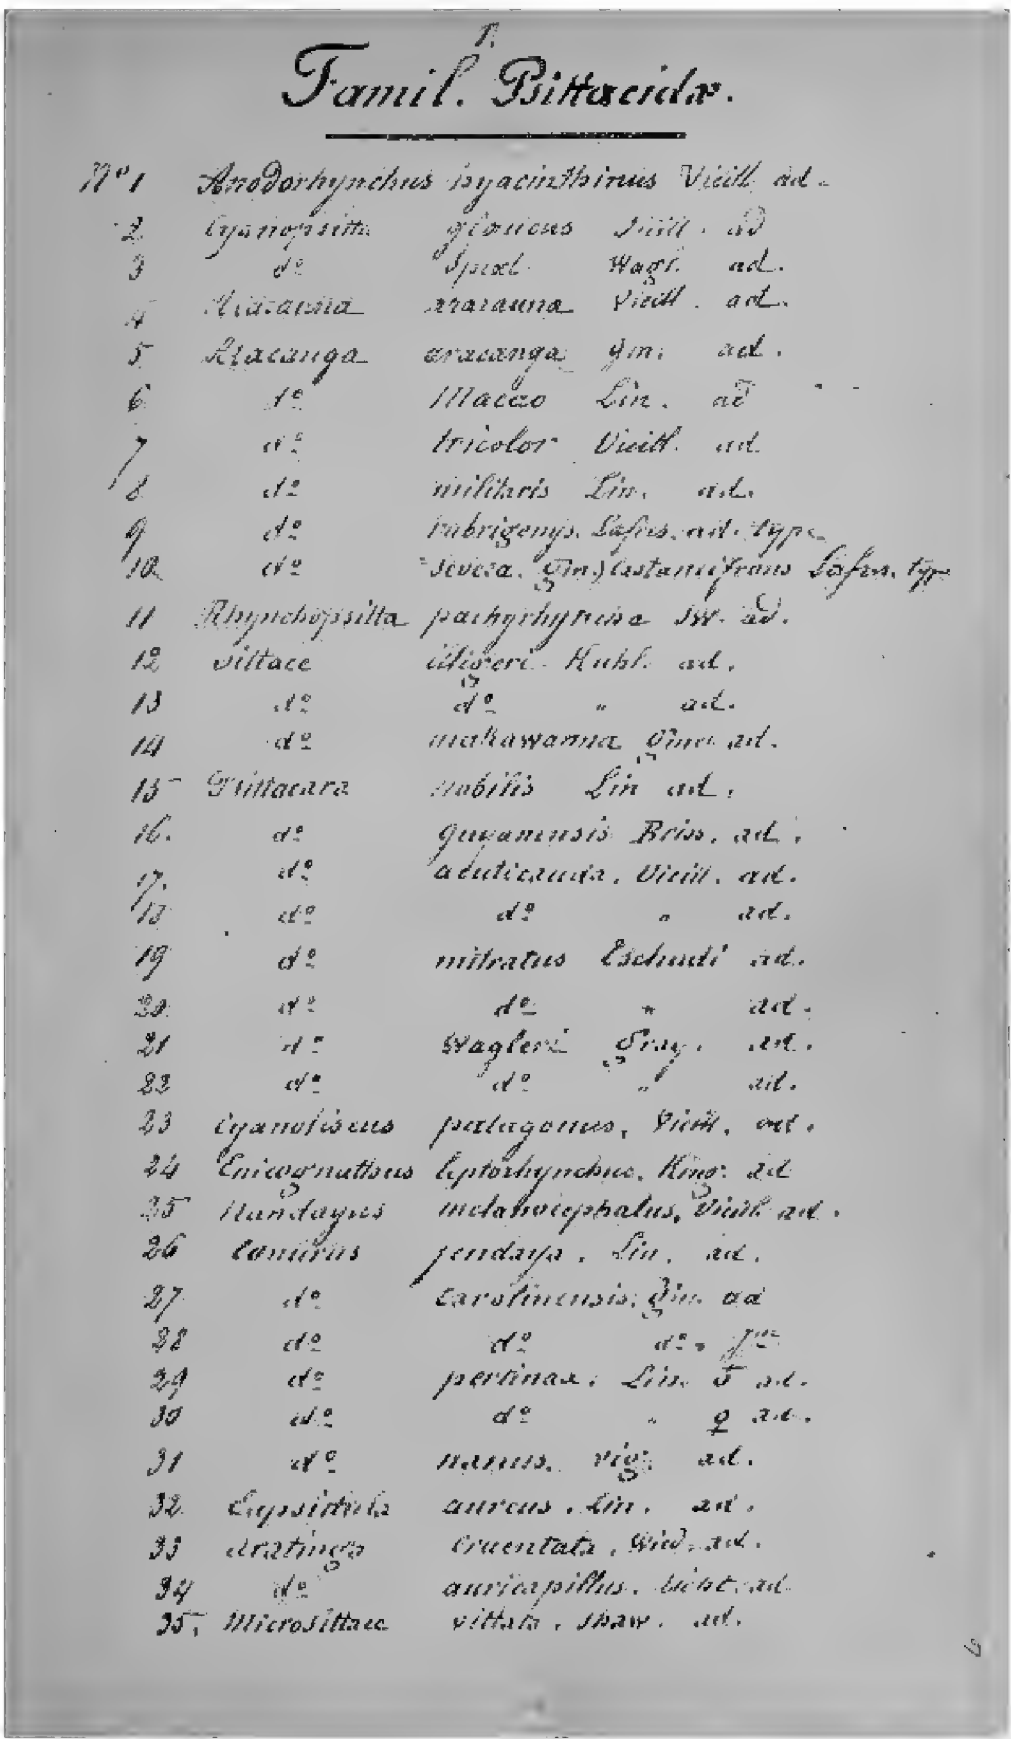 1.
Famil. Psittacidæ.
Nº 1 Anodorhynchus hyacinthinus Vieill. ad.
2 Cyanopsitta glaucus Vieill. ad
3 dº Spixi Wagl. ad.
4 Ararauna ararauna Vieill. ad.
5 Aracanga aracanga gm. ad.
6 dº Macao Lin. ad
7 dº tricolor Vieill. ad
8 dº militaris Lin. ad.
9 dº rubrigenys. Lafres. ad. type
10 dº severa. gm.) Castaneifrons Lafres. type
11 Rhynchopsitta pachyrhyncha SW. ad.
12 Sittace illigeri Kuhl. ad.
13 dº dº " ad.
14 dº makawanna gmel ad.
15 Psittacara nobilis Lin ad.
16. dº guyanensis Briss. ad.
17. dº acuticauda. Vieill. ad.
18 dº dº " ad.
19 dº mitratus Tschudi ad.
20 dº dº " ad.
21 dº Wagleri Gray. ad.
22 dº dº " ad.
23 Cyanoliseus patagonus. Vieill. ad.
24 Enicognathus leptorhynchus. King. ad
25 Nandayus melanocephalus. Vieill ad.
26 Conurus jendaya. Lin. ad.
27 dº carolinensis. Gm. ad
28 dº dº dº. Jne
29 dº pertinax. Lin. ♂ ad.
30 dº dº " ♀ ad.
31 dº nanus. vig. ad.
32 Eupsittula aureus. Lin. ad.
33 Aratinga cruentata. Wied. ad.
34 dº auricapillus. Licht. ad
35. Microsittace vittata. Shaw. ad.